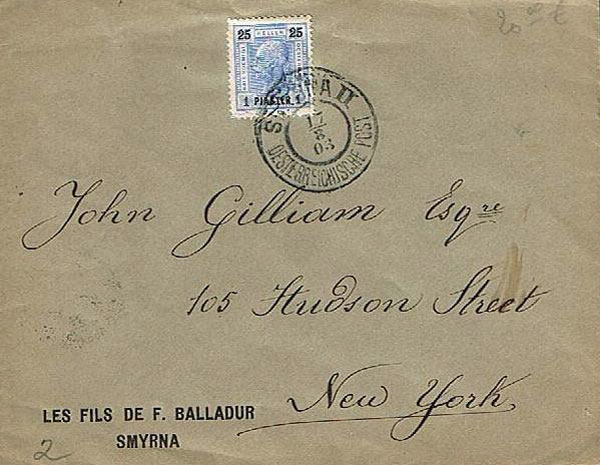 20 00 €
25 HELLER 25
1 PIASTER 1
SMYRNA II
17
8
03
OESTERREICHISCHE POST
John Gilliam Esqre
105 Hudson Street
New York
LES FILS DE F. BALLADUR
SMYRNA
2